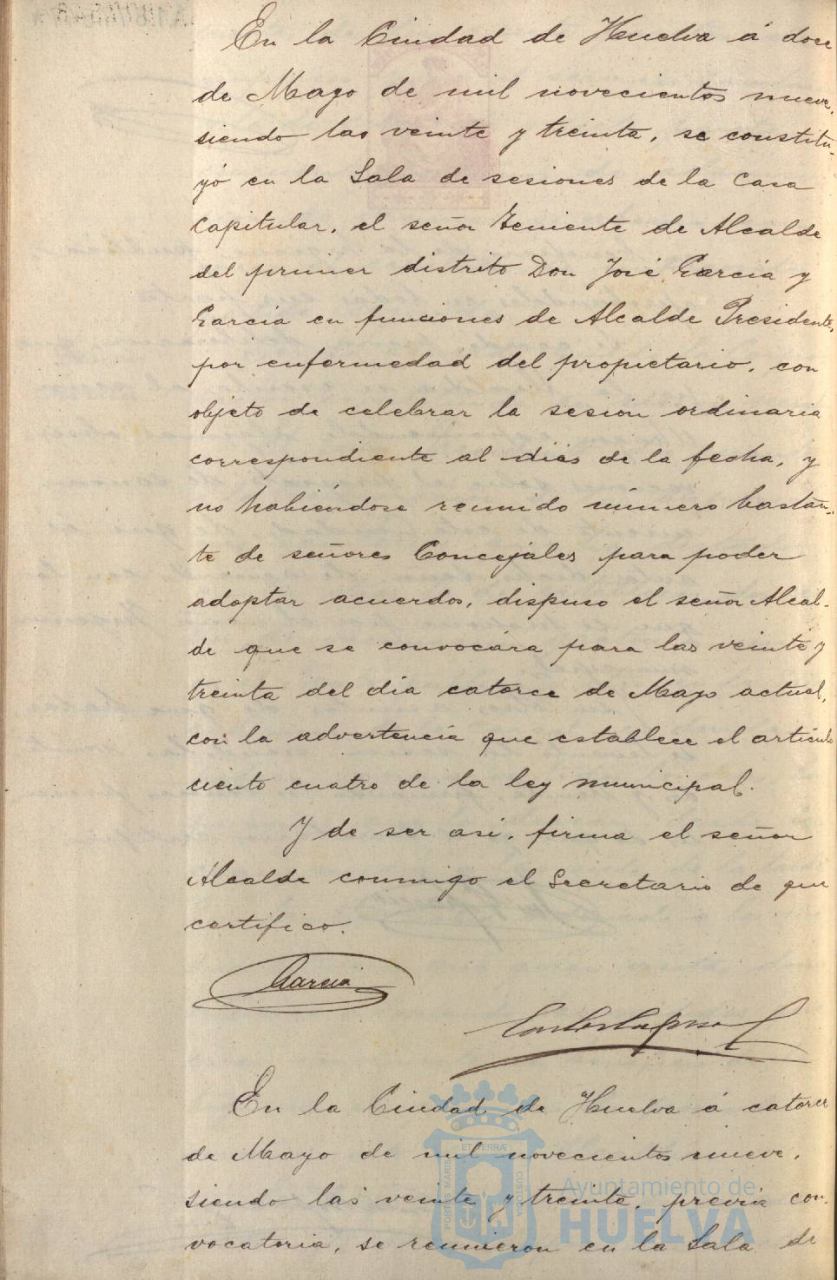 En la Ciudad de Huelva á doce
de Mayo de mil novecientos nueve,
siendo las veinte y treinta, se constitu-
yó en la Sala de sesiones de la Casa
Capitular, el señor Teniente de Alcalde
del primer distrito Don José García y
García en funciones de Alcalde Presidente,
por enfermedad del propietario, con
objeto de celebrar la sesión ordinaria
correspondiente al dias de la fecha, y
no habiéndose reunido número bastan-
te de señores Concejales para poder
adoptar acuerdos, dispuso el señor Alcal-
de que se convocára para las veinte y
treinta del día catorce de Mayo actual,
con la advertencia que establece el artículo
ciento cuatro de la ley municipal.
Y de ser así, firma el señor
Alcalde conmigo el Secretario de que
certifico.
García
En la Ciudad de Huelva á catorce
de Mayo de mil novecientos nueve,
siendo las veinte y treinta, previa con-
vocatoria, se reunieron en la Sala de
Ayuntamiento de
HUELVA